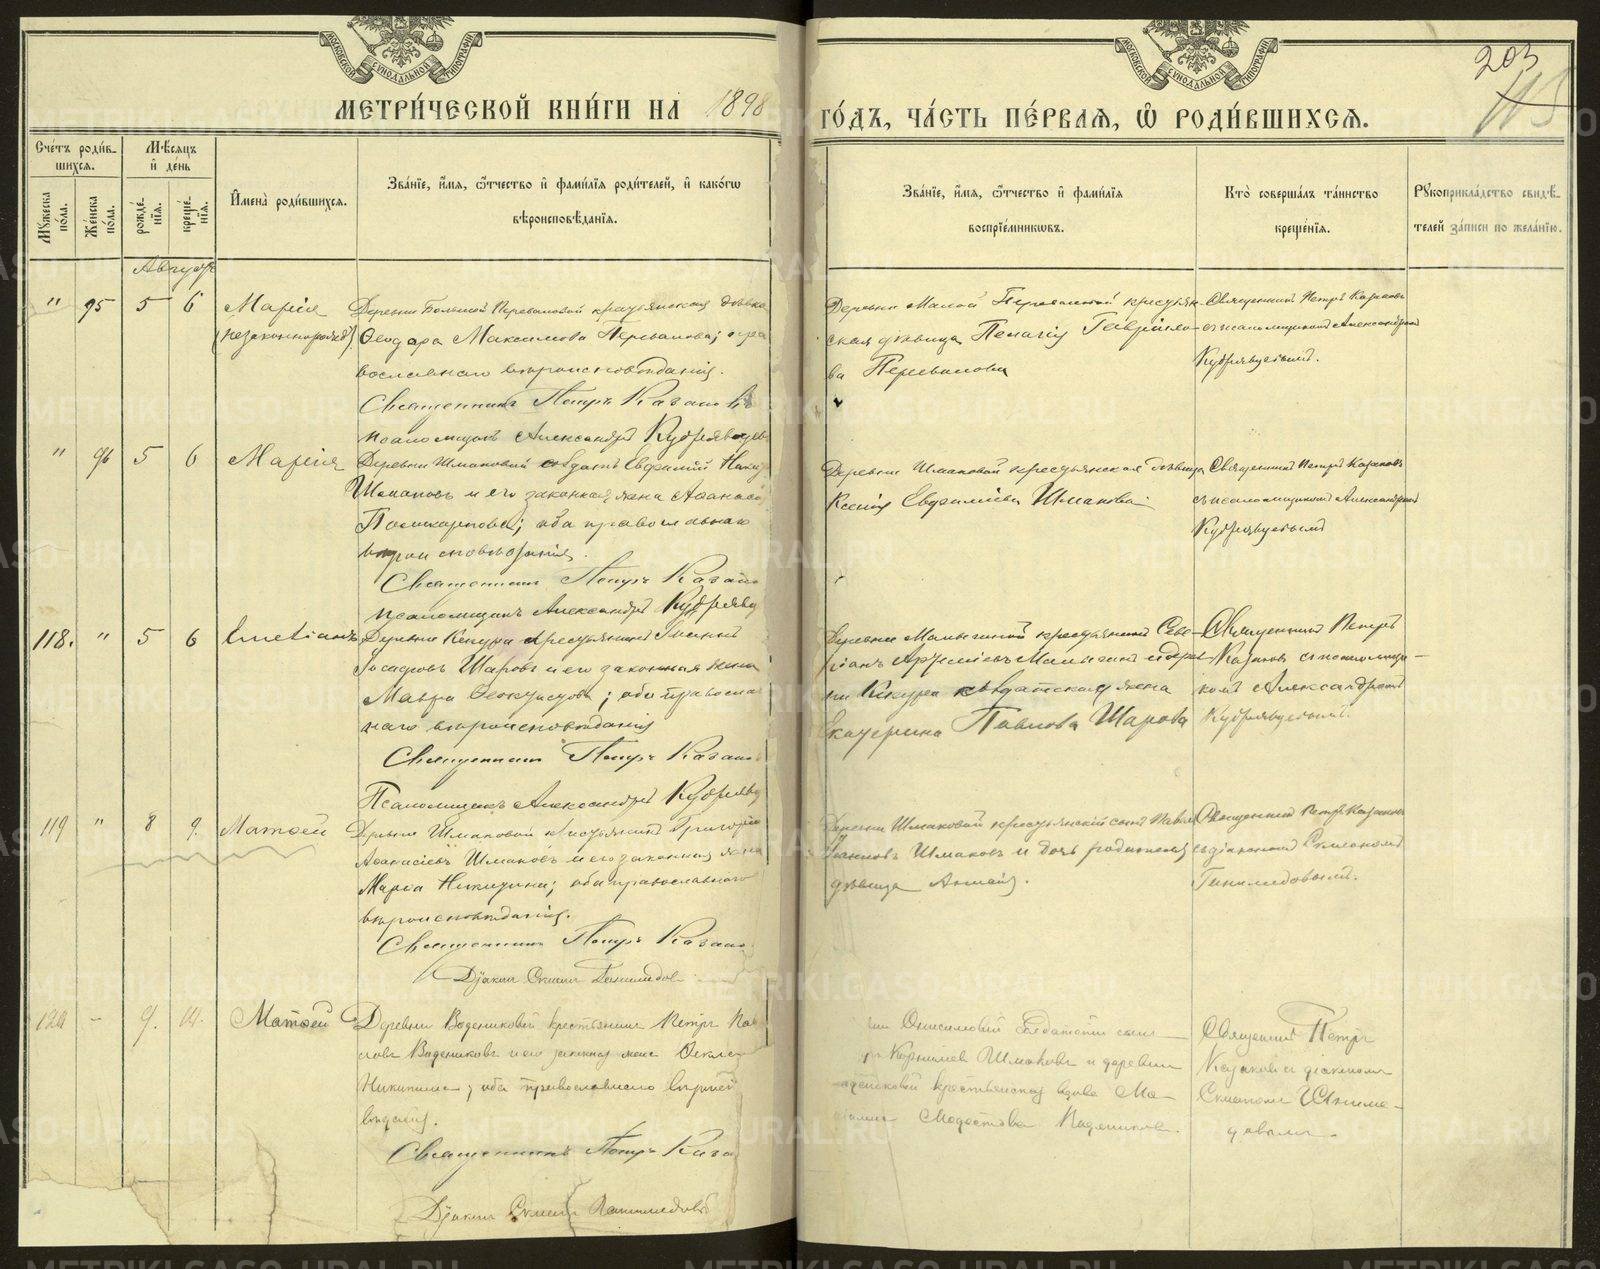 МОСКОВСКОЙ СѴНОДАЛЬНОЙ ТИПОГРАФІИ
МОСКОВСКОЙ СѴНОДАЛЬНОЙ ТИПОГРАФІИ
203
115
МЕТРИ́ЧЕСКОЙ КНИ́ГИ НА 1898
ГО́ДЪ, ЧА́СТЬ ПЕ́РВАЯ, Ѽ РОДИ́ВШИХСЯ.
Сче́тъ роди́в-
шихся.
Мѣ́сяцъ
и҆ де́нь
Мꙋ́жеска по́ла.
Же́нска по́ла.
рожде́-
нїѧ.
креще́-
нїѧ.
И҆мена̀ роди́вшихся.
Зва́нїе, и҆́мя, ѻ҆́тчество и҆ фами́лїя роди́телей, и҆ како́гѡ
вѣроисповѣ́данїя.
Зва́нїе, и҆́мя, ѻ҆́тчество и҆ фами́лїя
воспрїе́мникѡвъ.
Кто̀ соверша́лъ та́инство
креще́нїя.
Рꙋкоприкла́дство свидѣ́-
телей за́писи по жела́нїю.
Августъ
" 95 5 6 Марія
(незаконнорожд)
Деревни Большой Переваловой крестьянская дѣвка
Ѳеодора Максимова Перевалова; пра
вославнаго вѣроисповѣданія.
Священникъ Петръ Казаковъ
псаломщикъ Александръ Кудрявцев
Деревни Малой Переваловой крестьян-
ская дѣвица Пелагія Гавріило-
ва Перевалова
Священникъ Петръ Казаковъ
съ псаломщикомъ Александромъ
Кудрявцевымъ.
" 96 5 6 Марія
Деревни Шмаковой солдатъ Евфимій
Шмаковъ и его законная жена Аѳанасі
Поликарпова; оба православнаго
вѣроисповѣданія.
Священникъ Петръ Казако
псаломщикъ Александръ Кудрявц
Деревни Шмаковой крестьянская дѣвица
Ксенія Евфиміева Шмакова.
Священникъ Петръ Казаковъ
съ псаломщикомъ Александромъ
Кудрявцевымъ
118. " 5 6 Емеліанъ
Деревни Кекура крестьянинъ
Шаровъ и его законная жена
Мавра Ѳеоктистова; оба правосла
наго вѣроисповѣданія
Священникъ Петръ Казако
Псаломщикъ Александръ Кудрявц
Деревни Малыгиной крестьянинъ Севе-
ріанъ Артеміевъ Малыгинъ и дерев
ни Кекура солдатская жена
Екатерина Павлова Шарова
Священникъ Петръ
Казаковъ съ псаломщи-
комъ Александромъ
Кудрявцевымъ.
119 " 8 9. Матѳей
Деревни Шмаковой крестьянинъ Григорій
Аѳанасіевъ Шмаковъ и его законная жена
Марѳа Никитина; оба православнаго
вѣроисповѣданія.
Священникъ Петръ Казако
Діаконъ
Деревни Шмаковой крестьянскій сынъ Павелъ
Іоанновъ Шмаковъ и дочь родителя
дѣвица
Священникъ Петръ Казаковъ
съ діакономъ
120 - 9. 14. Матѳей
Деревни Водениковой крестьянинъ Петръ Пав
ловъ Водениковъ и его законная жена Ѳекла
Никитина; оба православнаго вѣроис
вѣданія.
Священникъ Петръ Каза
Діаконъ
Онисимовой солдатскій сынъ
Корниліевъ Шмаковъ и деревни
крестьянская вдова Ма-
Модестова Воденикова.
Священникъ Петръ
Казаковъ съ діакономъ
METRIKI.GASO-URAL.RU